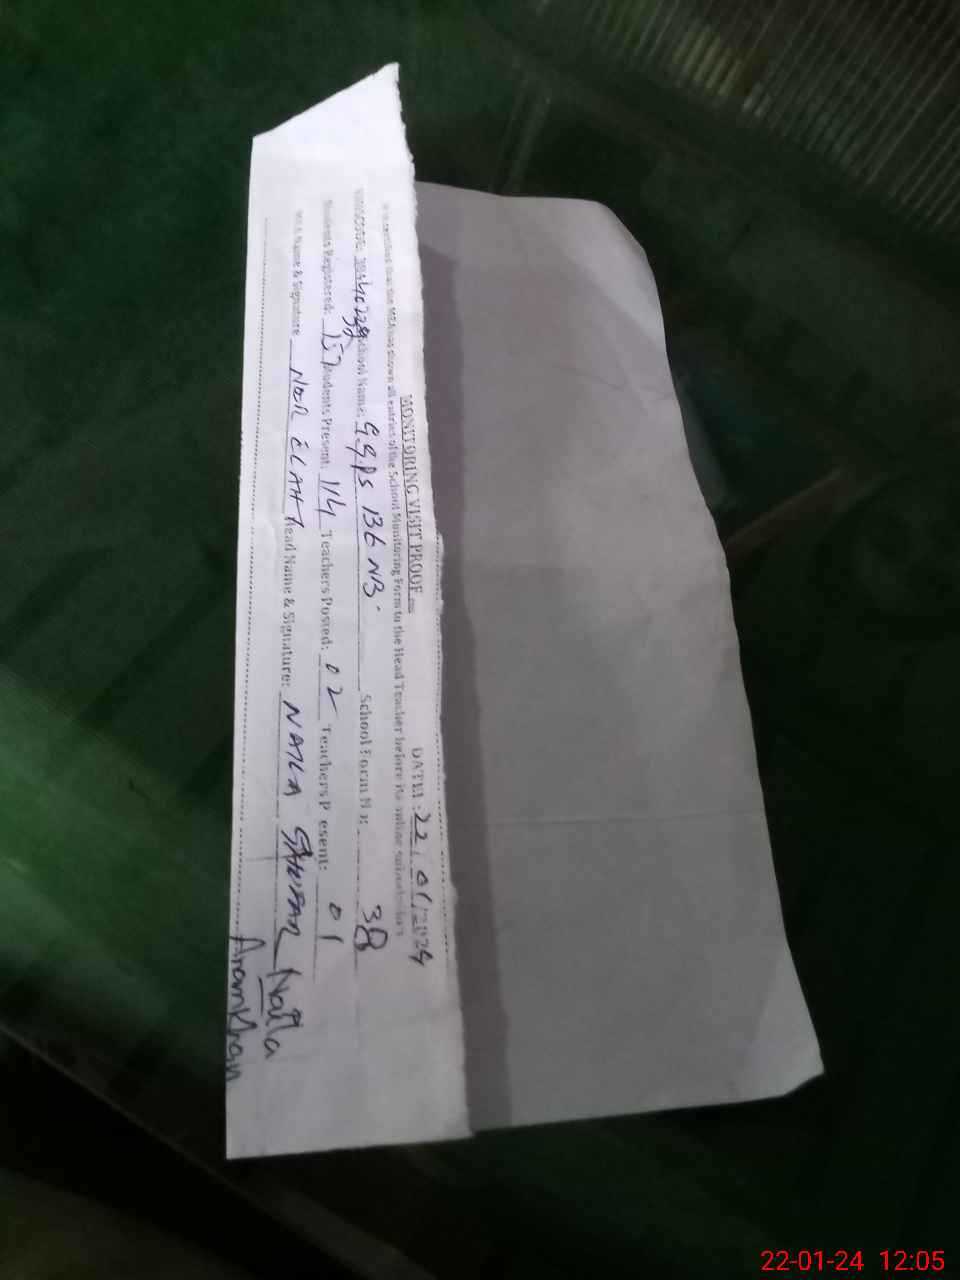 MONITORING VISIT PROOF
DATE: 22/01/2024
It is certified that the MEA has shown all entries of the School Monitoring Form to the Head Teacher before its online submission
School Name: G.G.P.S 136 NB. School Form No: 38
Students Registered: 157 Students Present: 114 Teachers Posted: 02 Teachers Present: 01
MEA Name & Signature NOOR ELAHI Head Name & Signature: NAILA Naila
Anam Khan
22-01-24 12:05